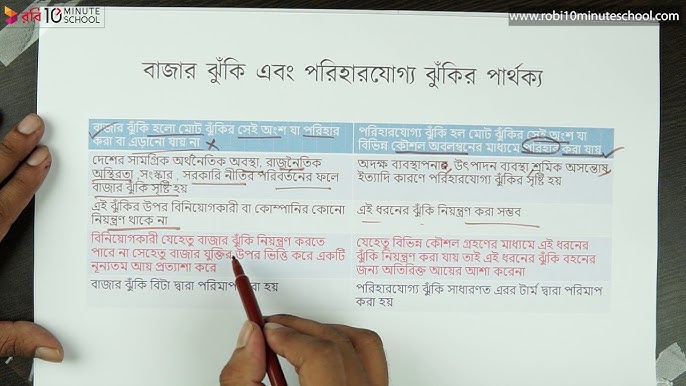 রবি 10 MINUTE SCHOOL
www.robi10minuteschool.com
বাজার ঝুঁকি এবং পরিহারযোগ্য ঝুঁকির পার্থক্য
বাজার ঝুঁকি হলো মোট ঝুঁকির সেই অংশ যা পরিহার
করা বা এড়ানো যায় না
পরিহারযোগ্য ঝুঁকি হল মোট ঝুঁকির সেই অংশ যা
বিভিন্ন কৌশল অবলম্বনের মাধ্যমে পরিহার করা যায়
দেশের সামগ্রিক অর্থনৈতিক অবস্থা, রাজনৈতিক
অস্থিরতা, সংস্কার , সরকারি নীতির পরিবর্তনের ফলে
বাজার ঝুঁকি সৃষ্টি হয়
অদক্ষ ব্যবস্থাপনা, উৎপাদন ব্যবস্থা শ্রমিক অসন্তোষ
ইত্যাদি কারণে পরিহারযোগ্য ঝুঁকির সৃষ্টি হয়
এই ঝুঁকির উপর বিনিয়োগকারী বা কোম্পানির কোনো
নিয়ন্ত্রণ থাকে না
এই ধরনের ঝুঁকি নিয়ন্ত্রণ করা সম্ভব
বিনিয়োগকারী যেহেতু বাজার ঝুঁকি নিয়ন্ত্রণ করতে
পারে না সেহেতু বাজার যুক্তির উপর ভিত্তি করে একটি
নূন্যতম আয় প্রত্যাশা করে
যেহেতু বিভিন্ন কৌশল গ্রহণের মাধ্যমে এই ধরনের
ঝুঁকি নিয়ন্ত্রণ করা যায় তাই এই ধরনের ঝুঁকি বহনের
জন্য অতিরিক্ত আয়ের আশা করেনা
বাজার ঝুঁকি বিটা দ্বারা পরিমাপ করা হয়
পরিহারযোগ্য ঝুঁকি সাধারণত এরর টার্ম দ্বারা পরিমাপ
করা হয়